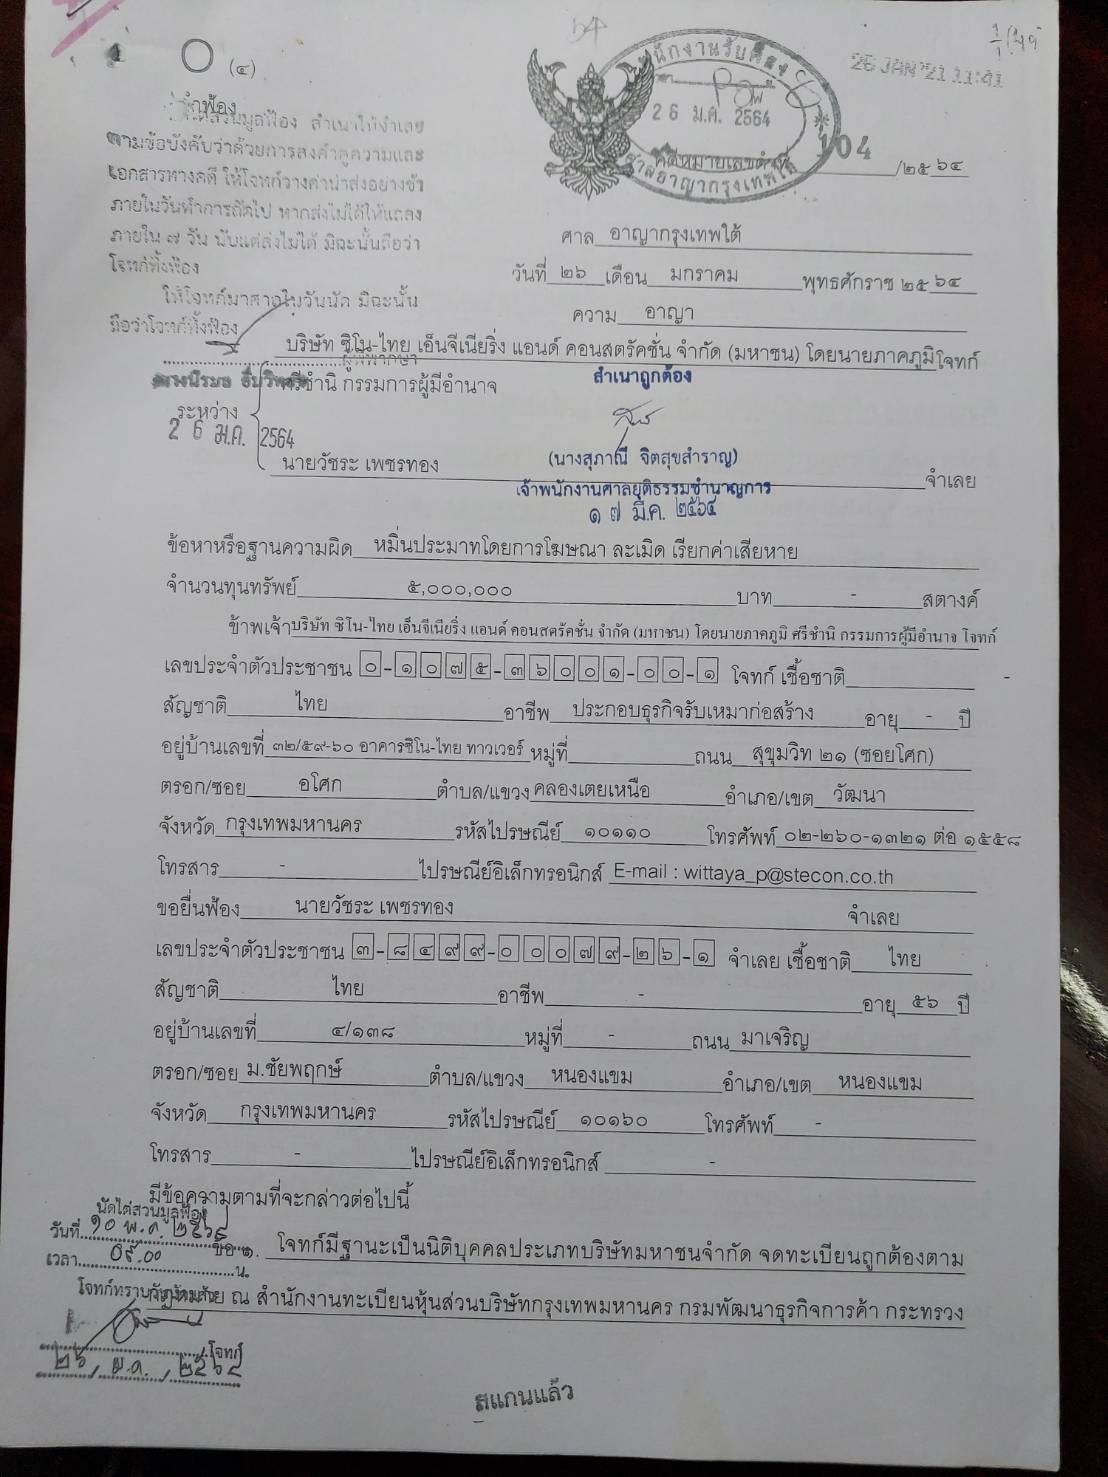 O (๔)
26 JAN '21 11:41
คำฟ้อง
สำนักงานรับฟ้อง
2 6 ม.ค. 2564
ศาลอาญากรุงเทพใต้
ไต่สวนมูลฟ้อง สำเนาให้จำเลย
ตามข้อบังคับว่าด้วยการส่งคำคู่ความและ
เอกสารทางคดี ให้โจทก์วางค่านำส่งอย่างช้า
ภายในวันทำการถัดไป หากส่งไม่ได้ให้แถลง
ภายใน ๗ วัน นับแต่ส่งไม่ได้ มิฉะนั้นถือว่า
โจทก์ทิ้งฟ้อง
ให้โจทก์มาศาลในวันนัด มิฉะนั้น
ถือว่าโจทก์ทิ้งฟ้อง
ผู้พิพากษา
2 6 ม.ค. 2564
คดีหมายเลขดำที่ 104 /๒๕๖๔
ศาล อาญากรุงเทพใต้
วันที่ ๒๖ เดือน มกราคม พุทธศักราช ๒๕๖๔
ความ อาญา
บริษัท ซิโน-ไทย เอ็นจีเนียริ่ง แอนด์ คอนสตรัคชั่น จำกัด (มหาชน) โดยนายภาคภูมิ โจทก์
ศรีชำนิ กรรมการผู้มีอำนาจ
สำเนาถูกต้อง
ระหว่าง
(นางสุภาณี จิตสุขสำราญ)
นายวัชระ เพชรทอง จำเลย
เจ้าพนักงานศาลยุติธรรมชำนาญการ
๑ ๗ มี.ค. ๒๕๖๔
ข้อหาหรือฐานความผิด หมิ่นประมาทโดยการโฆษณา ละเมิด เรียกค่าเสียหาย
จำนวนทุนทรัพย์ ๕,๐๐๐,๐๐๐ บาท - สตางค์
ข้าพเจ้า บริษัท ซิโน-ไทย เอ็นจีเนียริ่ง แอนด์ คอนสตรัคชั่น จำกัด (มหาชน) โดยนายภาคภูมิ ศรีชำนิ กรรมการผู้มีอำนาจ โจทก์
เลขประจำตัวประชาชน ๐-๑๐๗๕-๓๖๐๐๑-๐๐-๑ โจทก์ เชื้อชาติ -
สัญชาติ ไทย อาชีพ ประกอบธุรกิจรับเหมาก่อสร้าง อายุ - ปี
อยู่บ้านเลขที่ ๓๒/๕๙-๖๐ อาคารซิโน-ไทย ทาวเวอร์ หมู่ที่ ถนน สุขุมวิท ๒๑ (ซอยโศก)
ตรอก/ซอย อโศก ตำบล/แขวง คลองเตยเหนือ อำเภอ/เขต วัฒนา
จังหวัด กรุงเทพมหานคร รหัสไปรษณีย์ ๑๐๑๑๐ โทรศัพท์ ๐๒-๒๖๐-๑๓๒๑ ต่อ ๑๕๕๘
โทรสาร - ไปรษณีย์อิเล็กทรอนิกส์ E-mail : wittaya_p@stecon.co.th
ขอยื่นฟ้อง นายวัชระ เพชรทอง จำเลย
เลขประจำตัวประชาชน ๓-๘๔๙๙-๐๐๐๗๙-๒๖-๑ จำเลย เชื้อชาติ ไทย
สัญชาติ ไทย อาชีพ - อายุ ๕๖ ปี
อยู่บ้านเลขที่ ๔/๑๓๘ หมู่ที่ - ถนน มาเจริญ
ตรอก/ซอย ม.ชัยพฤกษ์ ตำบล/แขวง หนองแขม อำเภอ/เขต หนองแขม
จังหวัด กรุงเทพมหานคร รหัสไปรษณีย์ ๑๐๑๖๐ โทรศัพท์ -
โทรสาร - ไปรษณีย์อิเล็กทรอนิกส์ -
มีข้อความตามที่จะกล่าวต่อไปนี้
นัดไต่สวนมูลฟ้อง
วันที่ ๑๐ พ.ค. ๒๕๖๔
ข้อ ๑. โจทก์มีฐานะเป็นนิติบุคคลประเภทบริษัทมหาชนจำกัด จดทะเบียนถูกต้องตาม
เวลา ๐๙.๐๐ น.
กฎหมาย ณ สำนักงานทะเบียนหุ้นส่วนบริษัทกรุงเทพมหานคร กรมพัฒนาธุรกิจการค้า กระทรวง
โจทก์ทราบนัดแล้ว
โจทก์
๒๖ / ม.ค. / ๒๕๖๔
สแกนแล้ว